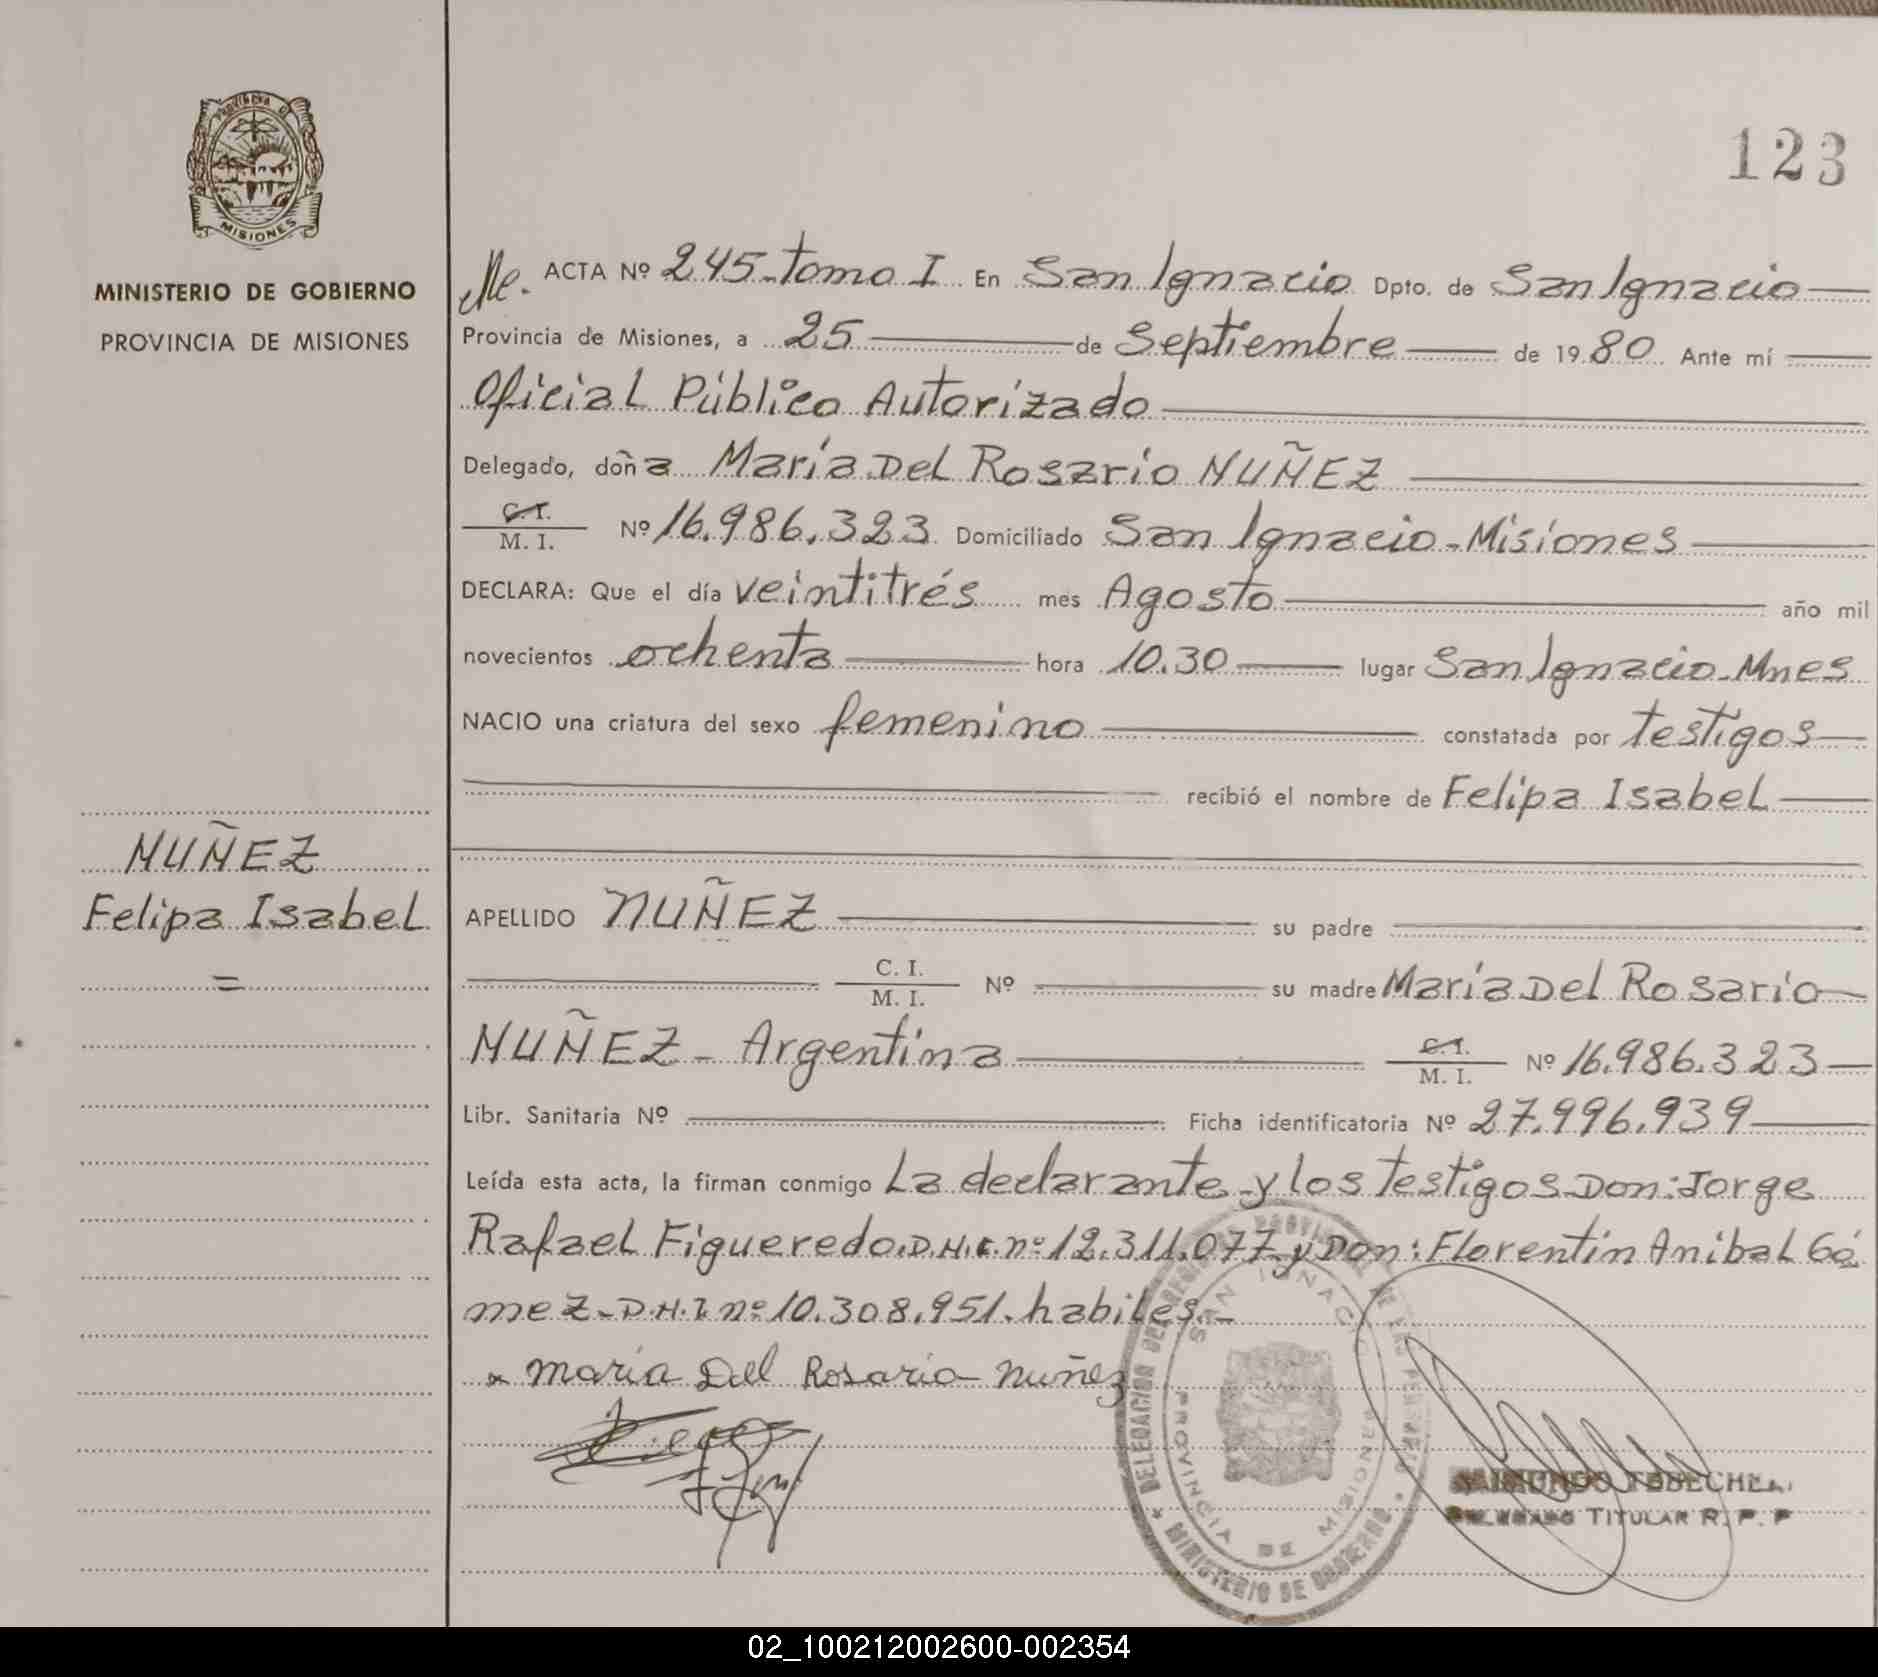 PROVINCIA D
MISIONES
MINISTERIO DE GOBIERNO
PROVINCIA DE MISIONES
NUÑEZ
Felipa Isabel
=
123
ACTA Nº 245-tomo I En San Ignacio Dpto. de San Ignacio
Provincia de Misiones, a 25 de Septiembre de 1980 Ante mí
Oficial Público Autorizado
Delegado, doña María Del Rosario NUÑEZ
C.I.
M. I. Nº 16.986.323 Domiciliado San Ignacio-Misiones
DECLARA: Que el día veintitrés mes Agosto año mil
novecientos ochenta hora 10.30 lugar San Ignacio-Mnes
NACIO una criatura del sexo femenino constatada por testigos
recibió el nombre de Felipa Isabel
APELLIDO NUÑEZ su padre
C. I.
M. I. Nº su madre María Del Rosario
NUÑEZ - Argentina C.I.
M. I. Nº 16.986.323
Libr. Sanitaria Nº Ficha identificatoria Nº 27.996.939
Leída esta acta, la firman conmigo La declarante y los testigos Don: Jorge
Rafael Figueredo.D.N.I.nº 12.311.077 y Don: Florentín Anibal Gó
mez-D.N.I nº 10.308.951. habiles.-
x María Del Rosario Nuñez
DELEGACION DEL REGISTRO PROVINCIAL DE LAS PERSONAS
SAN IGNACIO
PROVINCIA DE MISIONES
MINISTERIO DE GOBIERNO
TITULAR R. P. P
02_100212002600-002354